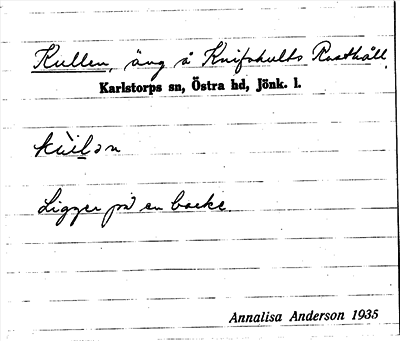 Kullen, äng å Knifshults Rusthåll,
Karlstorps sn, Östra hd, Jönk. l.
kùlən
Ligger på en backe.
Annalisa Anderson 1935